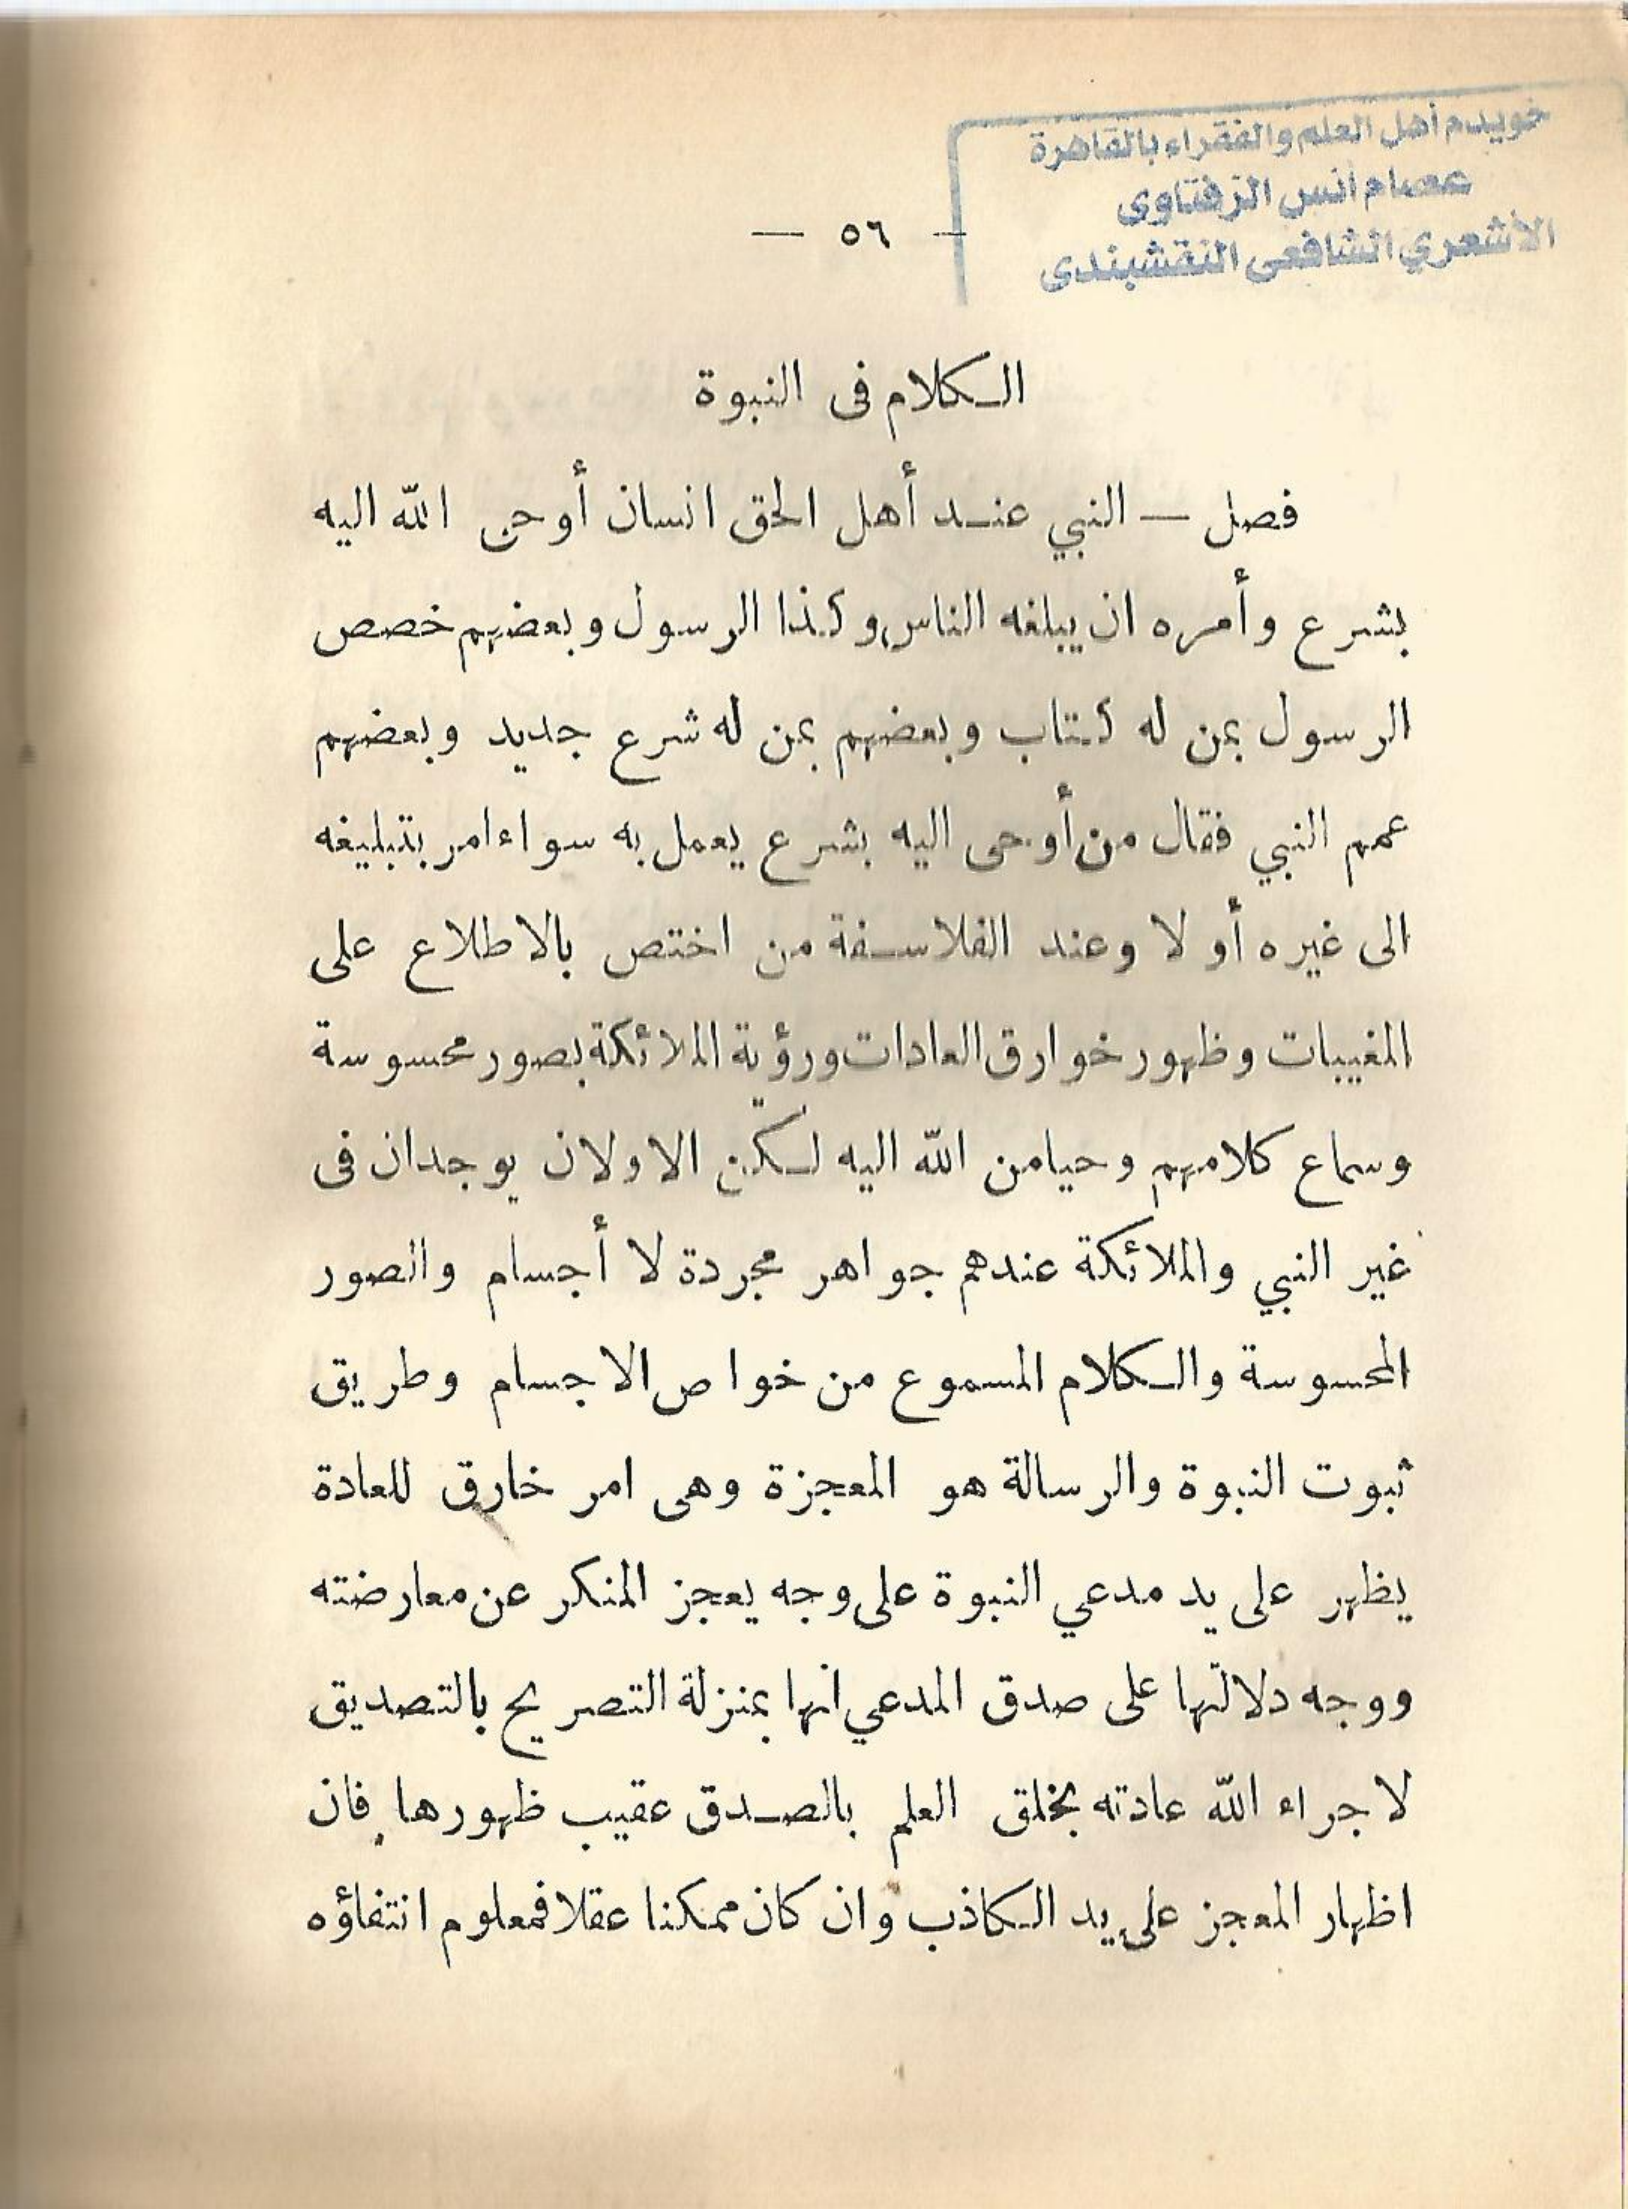 خويدم أهل العلم والفقراء بالقاهرة
عصام أنس الزفتاوى
الأشعري الشافعى النقشبندى
— ٥٦ —
الكلام فى النبوة
فصل — النبي عند أهل الحق انسان أوحى الله اليه
بشرع وأمره ان يبلغه الناس وكذا الرسول وبعضهم خصص
الرسول بمن له كتاب وبعضهم بمن له شرع جديد وبعضهم
عمم النبي فقال من أوحى اليه بشرع يعمل به سواء امر بتبليغه
الى غيره أو لا وعند الفلاسفة من اختص بالاطلاع على
المغيبات وظهور خوارق العادات ورؤية الملائكة بصور محسوسة
وسماع كلامهم وحيا من الله اليه لكنّ الاولان يوجدان فى
غير النبي والملائكة عندهم جواهر مجردة لا أجسام والصور
المحسوسة والكلام المسموع من خواص الاجسام وطريق
ثبوت النبوة والرسالة هو المعجزة وهى امر خارق للعادة
يظهر على يد مدعي النبوة على وجه يعجز المنكر عن معارضته
ووجه دلالتها على صدق المدعي انها بمنزلة التصريح بالتصديق
لاجراء الله عادته بخلق العلم بالصدق عقيب ظهورها فان
اظهار المعجز على يد الكاذب وان كان ممكنا عقلا فمعلوم انتفاؤه